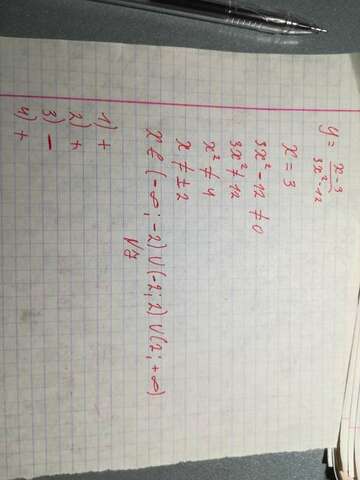 y = x-3 / 3x²-12
x = 3
3x² - 12 ≠ 0
3x² ≠ 12
x² ≠ 4
x ≠ ±2
x ∈ (-∞; -2) ∪ (-2; 2) ∪ (2; +∞)
1) +
2) +
3) -
4) +